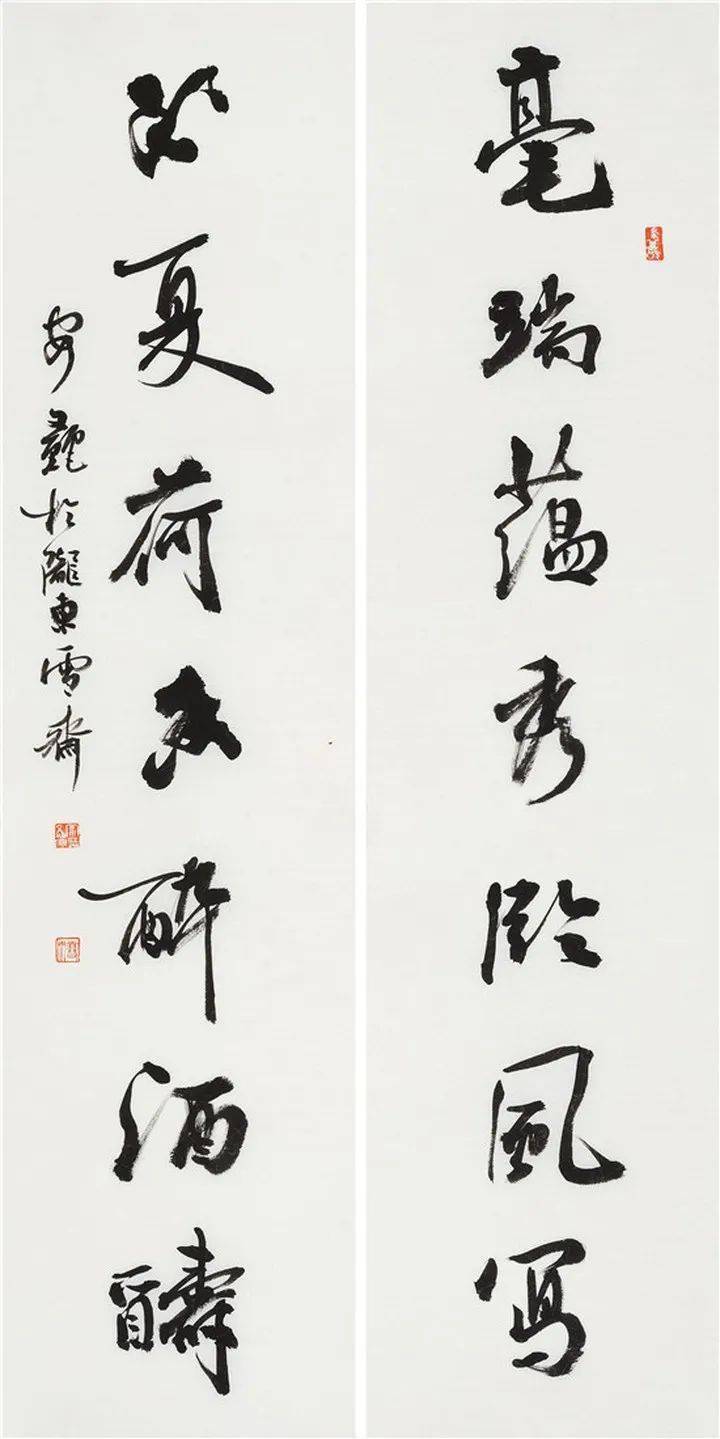 毫端蘊秀臨風寫
夏荷醉酒醻
安於隴東雪齋